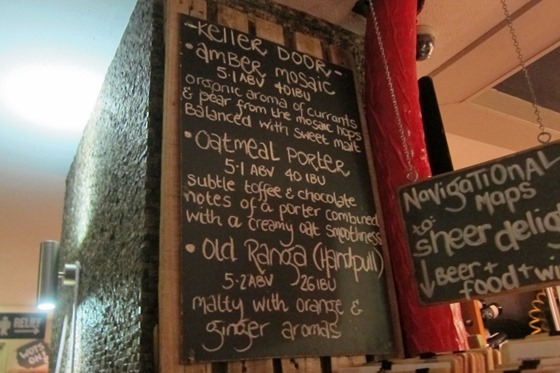 -KELLER DOOR-
• amber mosaic
5.1 ABV 40 IBU
organic aroma of currants
& pear from the mosaic hops
Balanced with sweet malt
• Oatmeal Porter
5.1 ABV 40 IBU
subtle toffee & chocolate
notes of a porter combined
with a creamy oat smoothness
• Old Ranga (Handpull)
5.2 ABV 26 IBU
malty with orange &
ginger aromas
NavigaTiONAL
MAPS
to:
sheer delic
↓ Beer +
food + wi
RELIEF